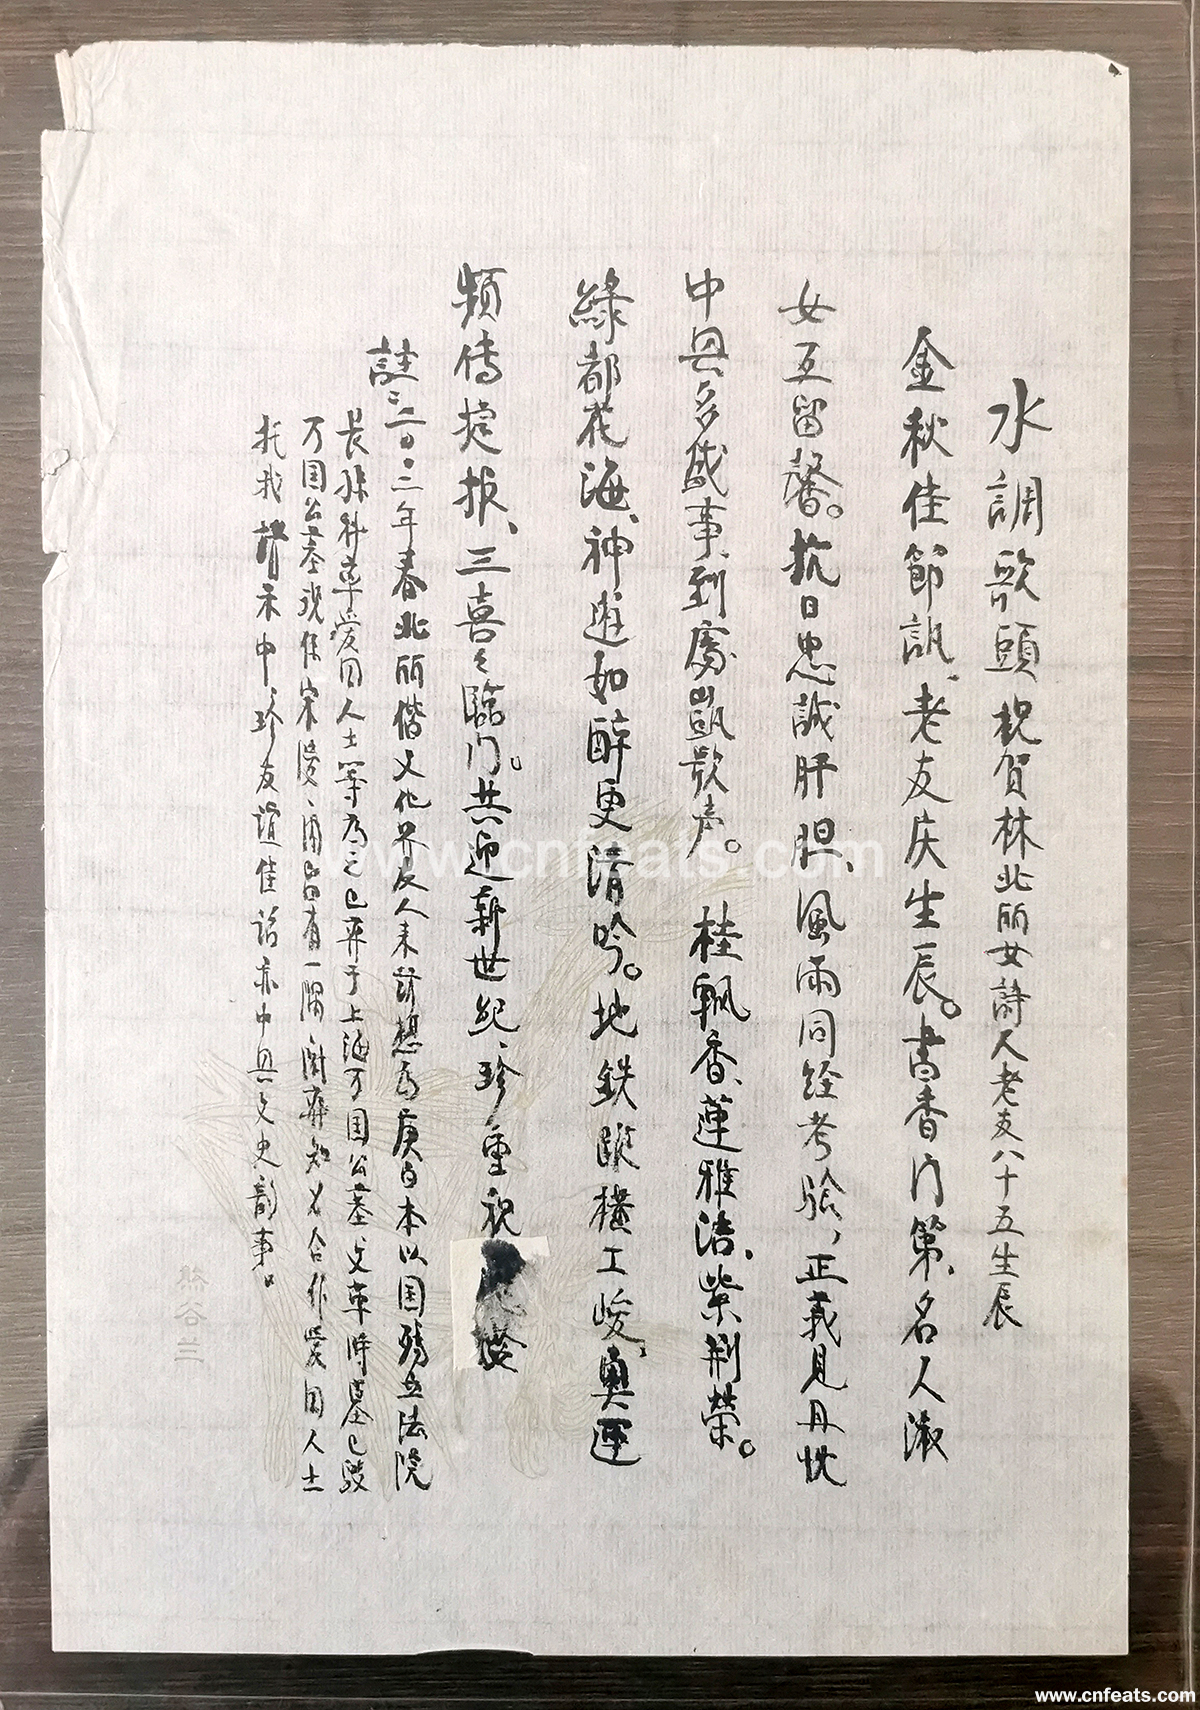 水調歌頭 祝賀林北丽女詩人老友八十五生辰
金秋佳節訊、老友庆生辰。書香门第、名人淑
女互留馨。抗日忠誠肝胆、風雨同経考驗，正義見丹忱
中兴多盛事、到處凱歌声。 桂飘香、蓮雅洁、紫荆榮。
綠都花海、神遊如醉更清吟。地鉄蹤橫工峻、奥運
頻传捷报、三喜々臨门。共迎新世纪、珍重祝
註：二00二年春北丽偕文化界友人来訪想为庚白本以国殇立法院
長孫科率爱国人士等为之已葬于上海万国公墓、文革時墓已毁
万国公墓現係宋陵、闻尚有一隅附葬知名合作爱国人士
托我請示中、珍友谊佳話亦中兴文史韵事。
熊谷三
www.cnfeats.com
www.cnfeats.com